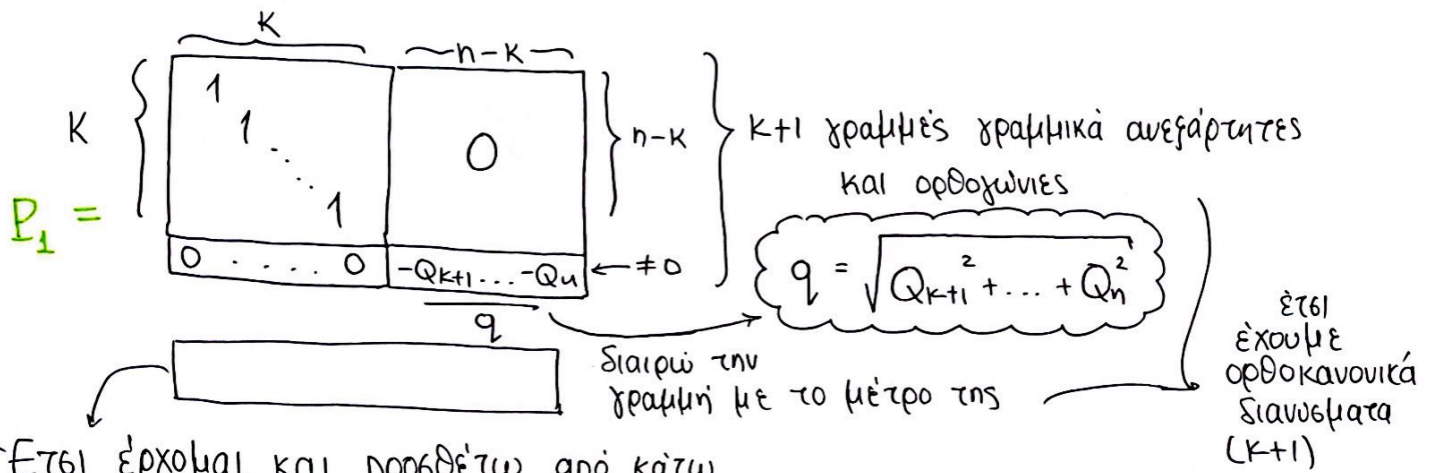 K
n-K
K
1
1
⋱
1
0
n-K
K+1 γραμμές γραμμικά ανεξάρτητες
και ορθογώνιες
P₁ =
0 . . . . . 0
-Qκ+1 ... -Qn
← ≠ 0
q
q = √(Qκ+1² + ... + Qn²)
διαιρώ την
γραμμή με το μέτρο της
έτσι
έχουμε
ορθοκανονικά
διανυσματα
(K+1)
Έτσι έρχομαι και προσθέτω από κάτω